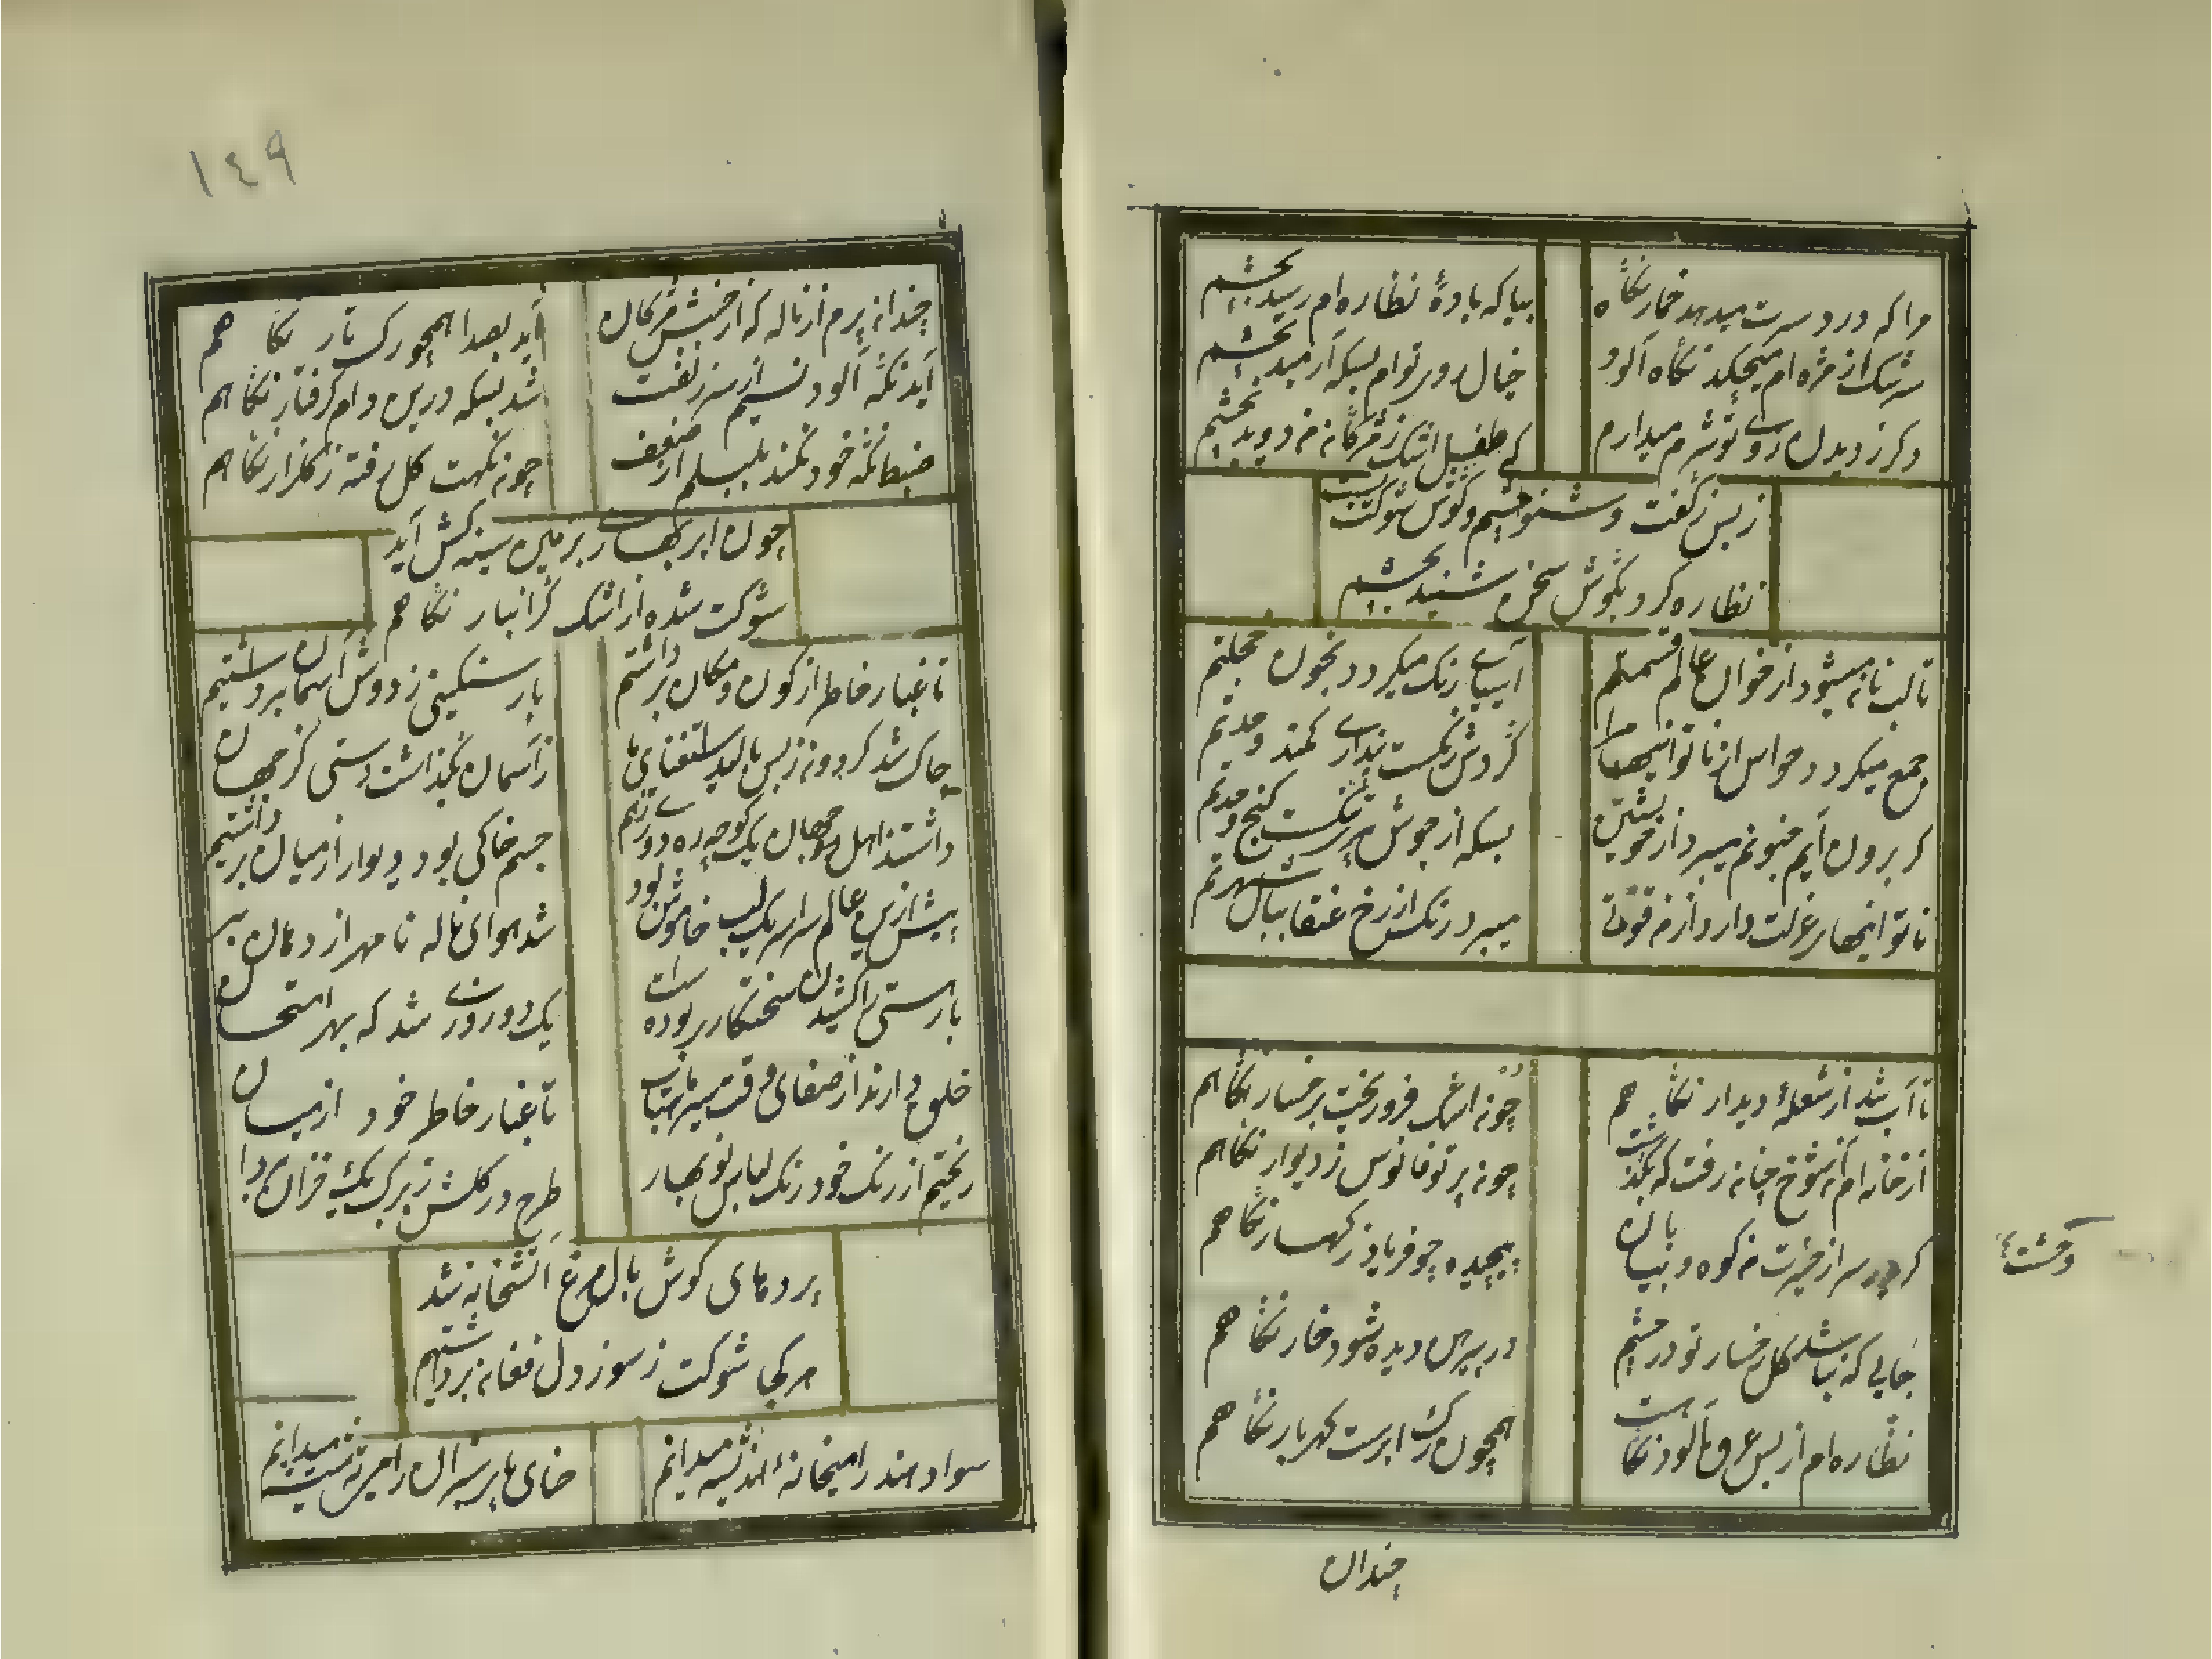 مرا که درد سرت میدهد خمار نگاه
بیا که بادهٔ نظاره ام رسید بچشم
سرشک از مژه ام میچکد نگاه آلود
خیال روی توام بسکه آرمید بچشم
وکرز دیدن روی تو شرم میدارم
طفیل اشک ز مژگانم دوید بچشم
زبس ز کفت و شنو چشم و کوش شوکت بست
نظاره کرد بکوش سخن شنید بچشم
تا لب نانم میشود از خوان عالم قسمتم
آسیای رنک میکردد بخون خجلتم
جمع میکردد حواس از ناتوانیها مرا
کردش رنکست پنداری کمند وحدتم
کر برون آیم جنونم میبرد از خویشتن
بسکه از جوش پری تنکست کنج وحدتم
ناتوانیهای عزلت دارد از من قوتی
میبرد رنک از رخ عنقا ببال شهرتم
تا آب شد از شعلهٔ دیدار نکاهم
چون اشک فرو ریخت برخسار نکاهم
از خانه ام آن شوخ چنان رفت که بگذشت
چون پرتو فانوس ز دیوار نکاهم
کرد سر از حیرت من کوه و بیابان
پیچیده چو فریاد ز کهسار نکاهم
وحشت
جایی که نباشد کل رخسار تو در چشم
در پیرهن دیده شود خار نکاهم
نظاره ام از بس عرق آلود نکاهت
همچون رک ابرست کهربار نکاهم
چندان
١٤٩
چندان پرم از ناله که از جنبش مژکان
آید بصدا همچو رک تار نکاهم
آید نکه آلود نسیم از سر زلفت
شد بسکه درین دام کرفتار نکاهم
ضبط نکه خود نکند بلبلم از ضعف
چون نکهت کل رفته ز کلزار نکاهم
چون ابر بهاری بزمین سینه کش آید
شوکت شده از اشک کرانبار نکاهم
تا غبار خاطر از کون و مکان برداشتم
بار سنکینی ز دوش آسمان برداشتیم
چاک شد کردون ز بس بالید استغنای ما
ز آسمان نکذاشت دستی کز جهان
داشتند اهل جهان یک کوچه ره دور از هم
جسم خاکی بود دیوار از میان برداشتیم
پیش ازین عالم سراسر یک لب خاموش بود
شد هوای ناله تا مهر از دهان بر
بار هستی را کشیدن سختکاری بوده است
یک دو روزی شد که بهر امتحان
خلوتی دارند از صفای وقت میر مهتاب
تا غبار خاطر خود از میان
ریختیم از رنک خود رنک لباس نو بهار
طرح در کلشن ز برک یک خزان بردا
پردهای کوش بال مرغ آتشخانه شد
هر کجا شوکت ز سوز دل فغان برداشتیم
سواد هند را میخانهٔ اندیشه میدانم
حنای پای سبزان را می ته شیشه میدانم